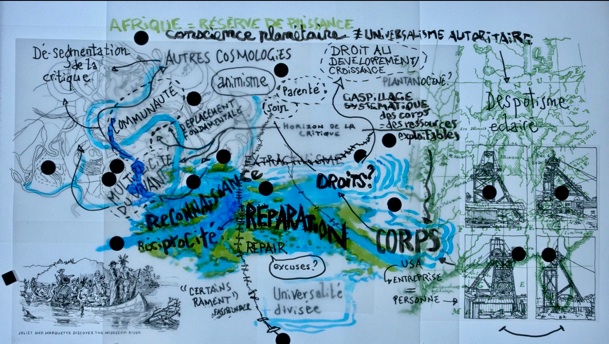 AFRIQUE = RÉSERVE DE PUISSANCE
CONSCIENCE planétaire ≠ UNIVERSALISME AUTORITAIRE
Dé-segmentation
de la
critique
AUTRES COSMOLOGIES
animisme
Parenté
Soin
DROIT AU
DEVELOPPEMENT/
CROISSANCE
PLANTANOCÈNE?
GASPILLAGE
SYSTEMATIQUE
des corps
des ressources
exploitables
Despotisme
eclairé
COMMUNAUTÉ
HORIZON DE LA
CRITIQUE
EXTRACTIVISME
DU VIVANT
DROITS?
RECONNAISSANCE
Réciprocité
REPARATION
REPAIR
CORPS
excuses?
USA
ENTREPRISE
=
PERSONNE
"CERTAINS
RAMENT"
Universalité
divisée
JOLIET AND MARQUETTE DISCOVER THE MISSISSIPPI RIVER